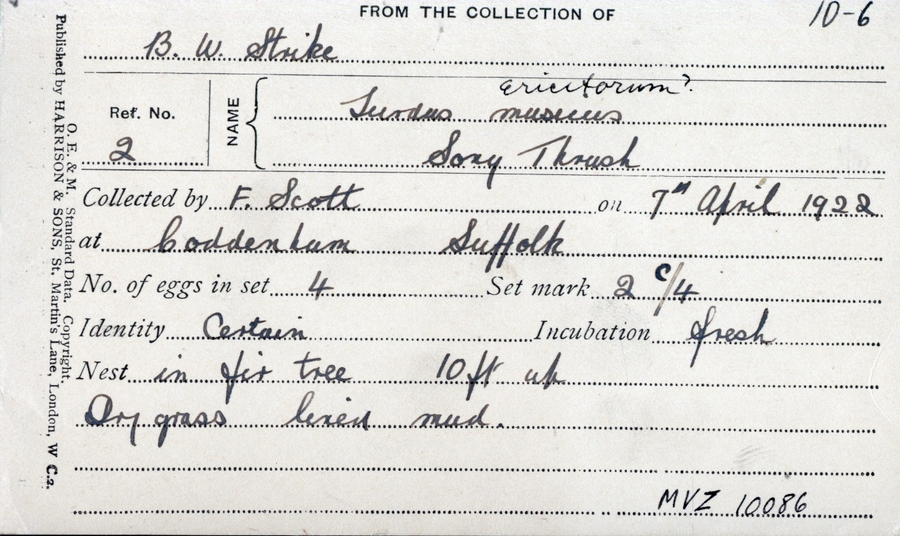 FROM THE COLLECTION OF 10-6
B. W. Strike
Ref. No. 2
NAME
ericetorum?
Turdus musicus
Song Thrush
Collected by F. Scott on 7th April 1922
at Coddenham Suffolk
No. of eggs in set 4 Set mark 2 c/4
Identity Certain Incubation fresh
Nest in fir tree 10ft up
Dry grass lined mud.
MVZ 10086
O. E. & M. Standard Data. Copyright.
Published by HARRISON & SONS, St. Martin's Lane, London, W C.2.